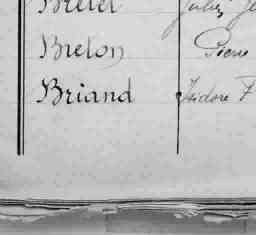 Bretel Jules
Breton Pierre
Briand Isidore F